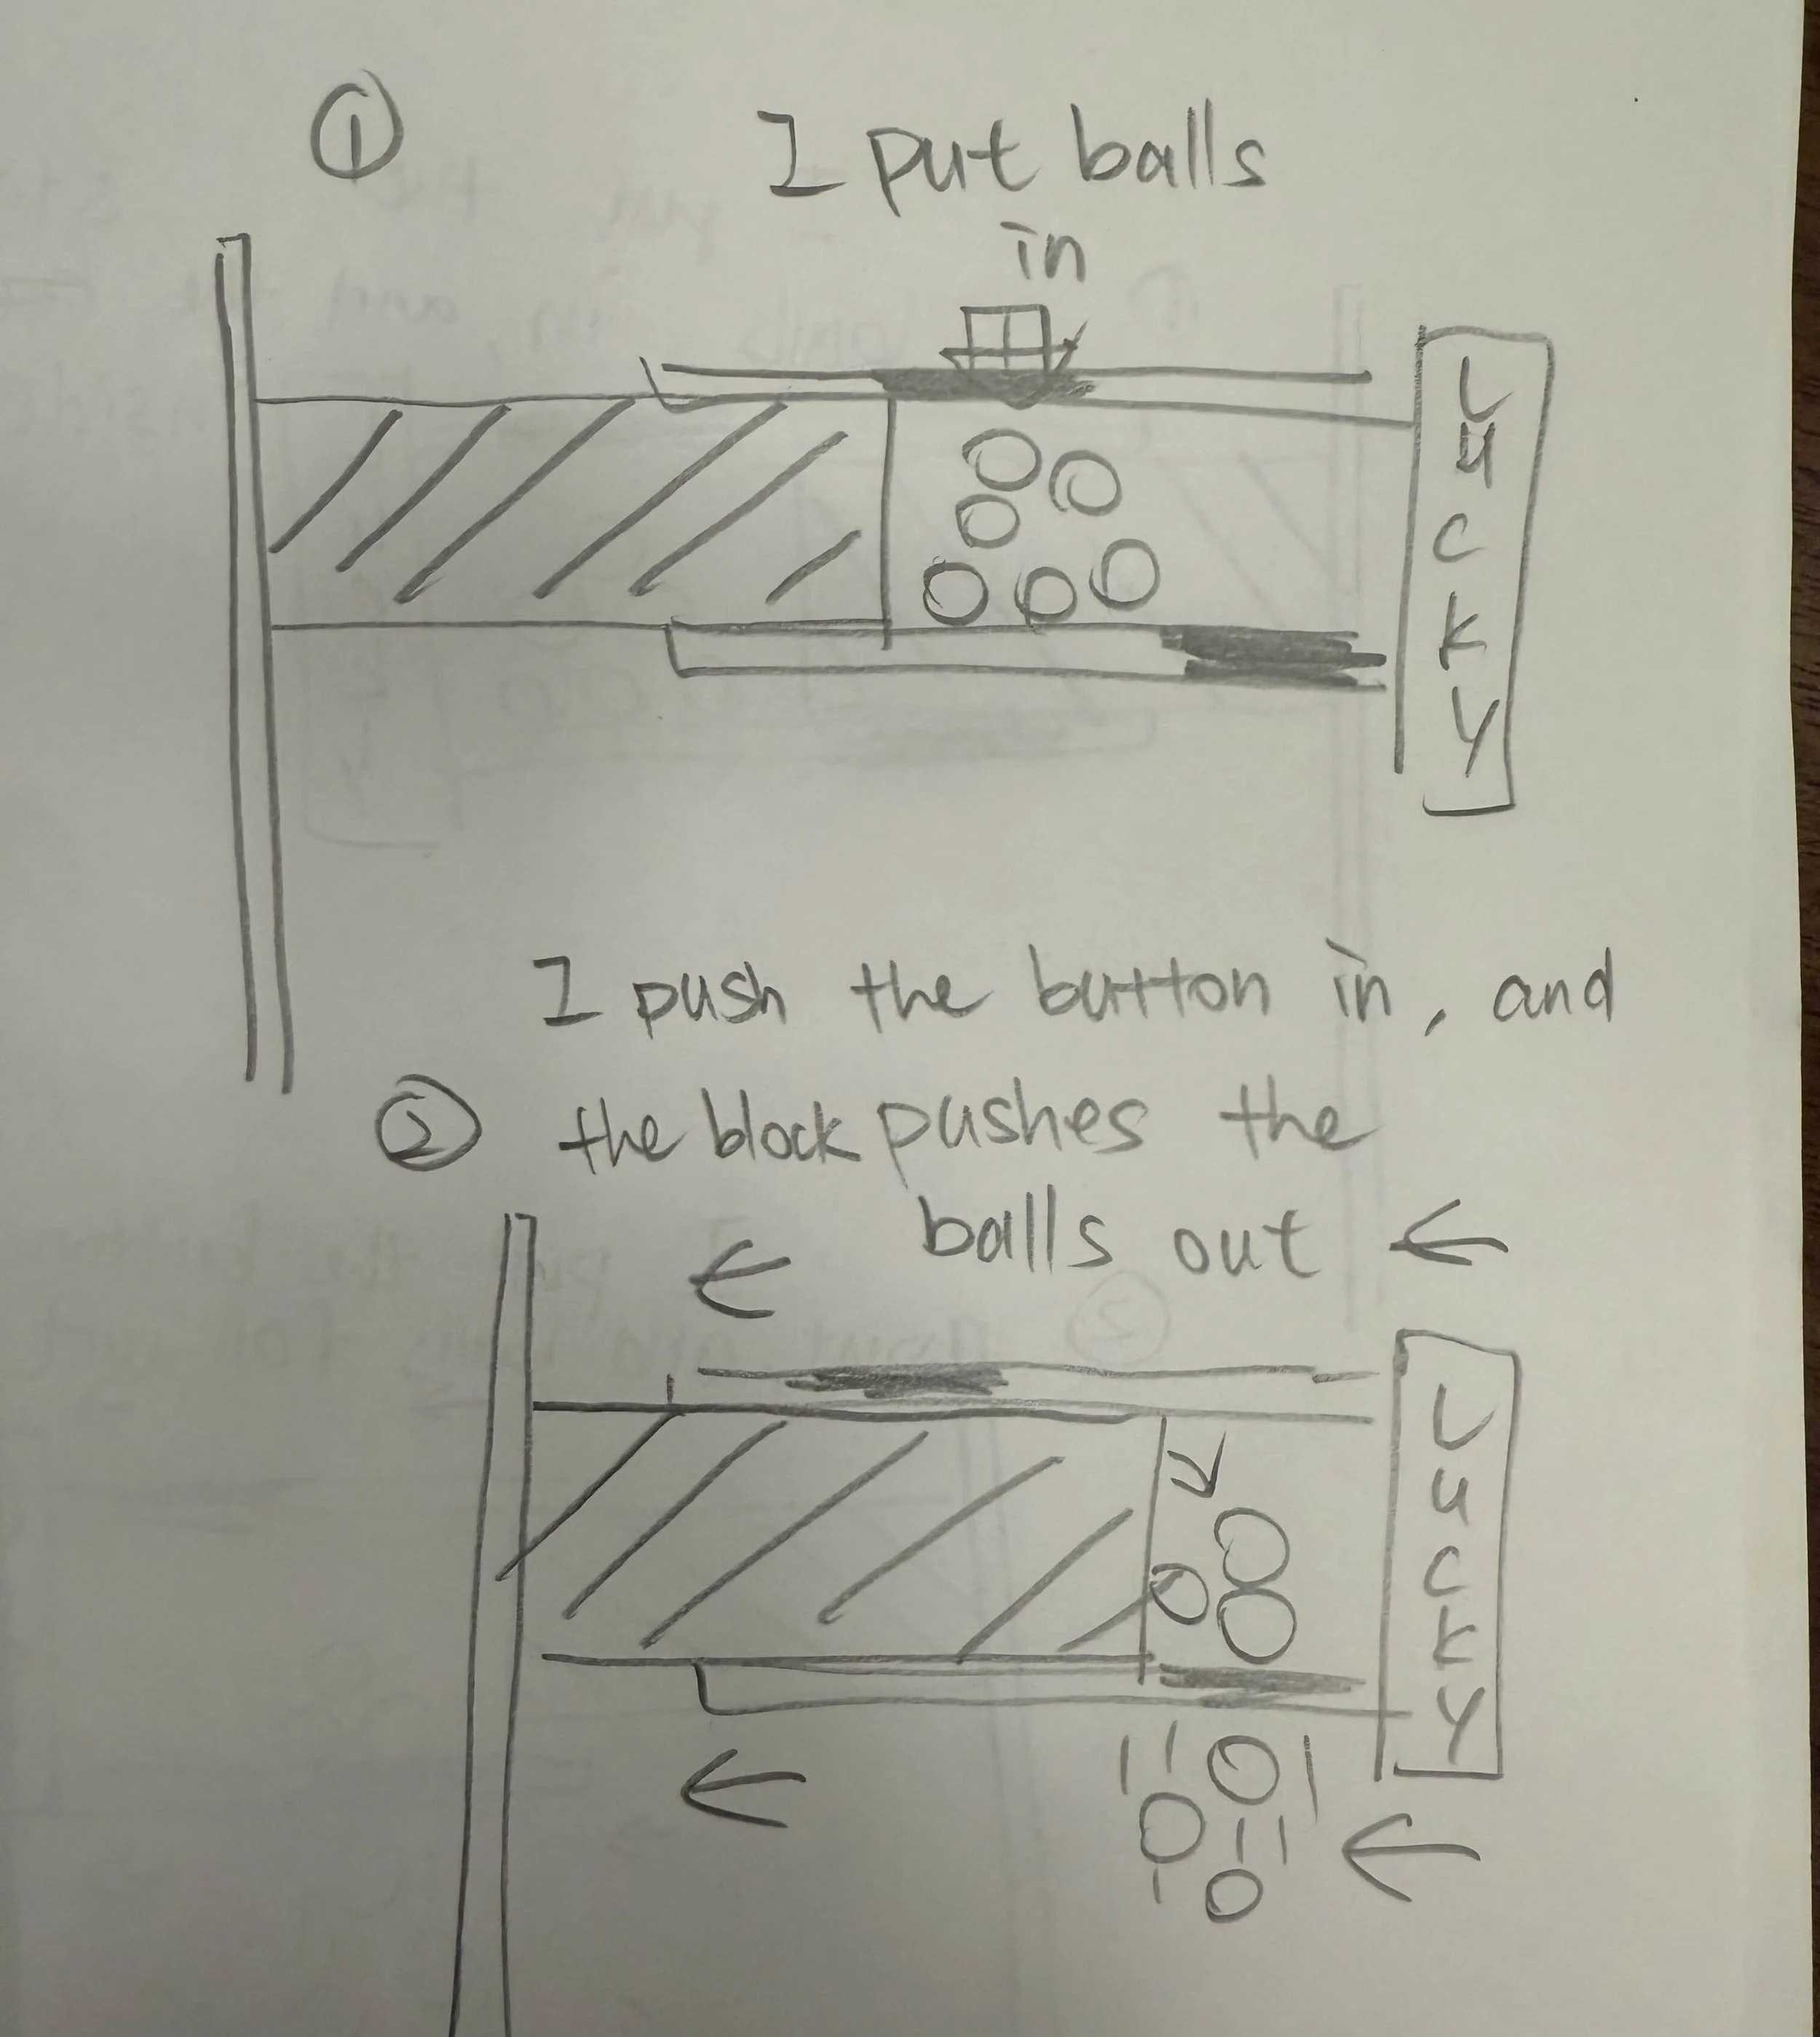 ①
I put balls
in
L
u
c
k
y
I push the button in, and
② the block pushes the
balls out
L
u
c
k
y